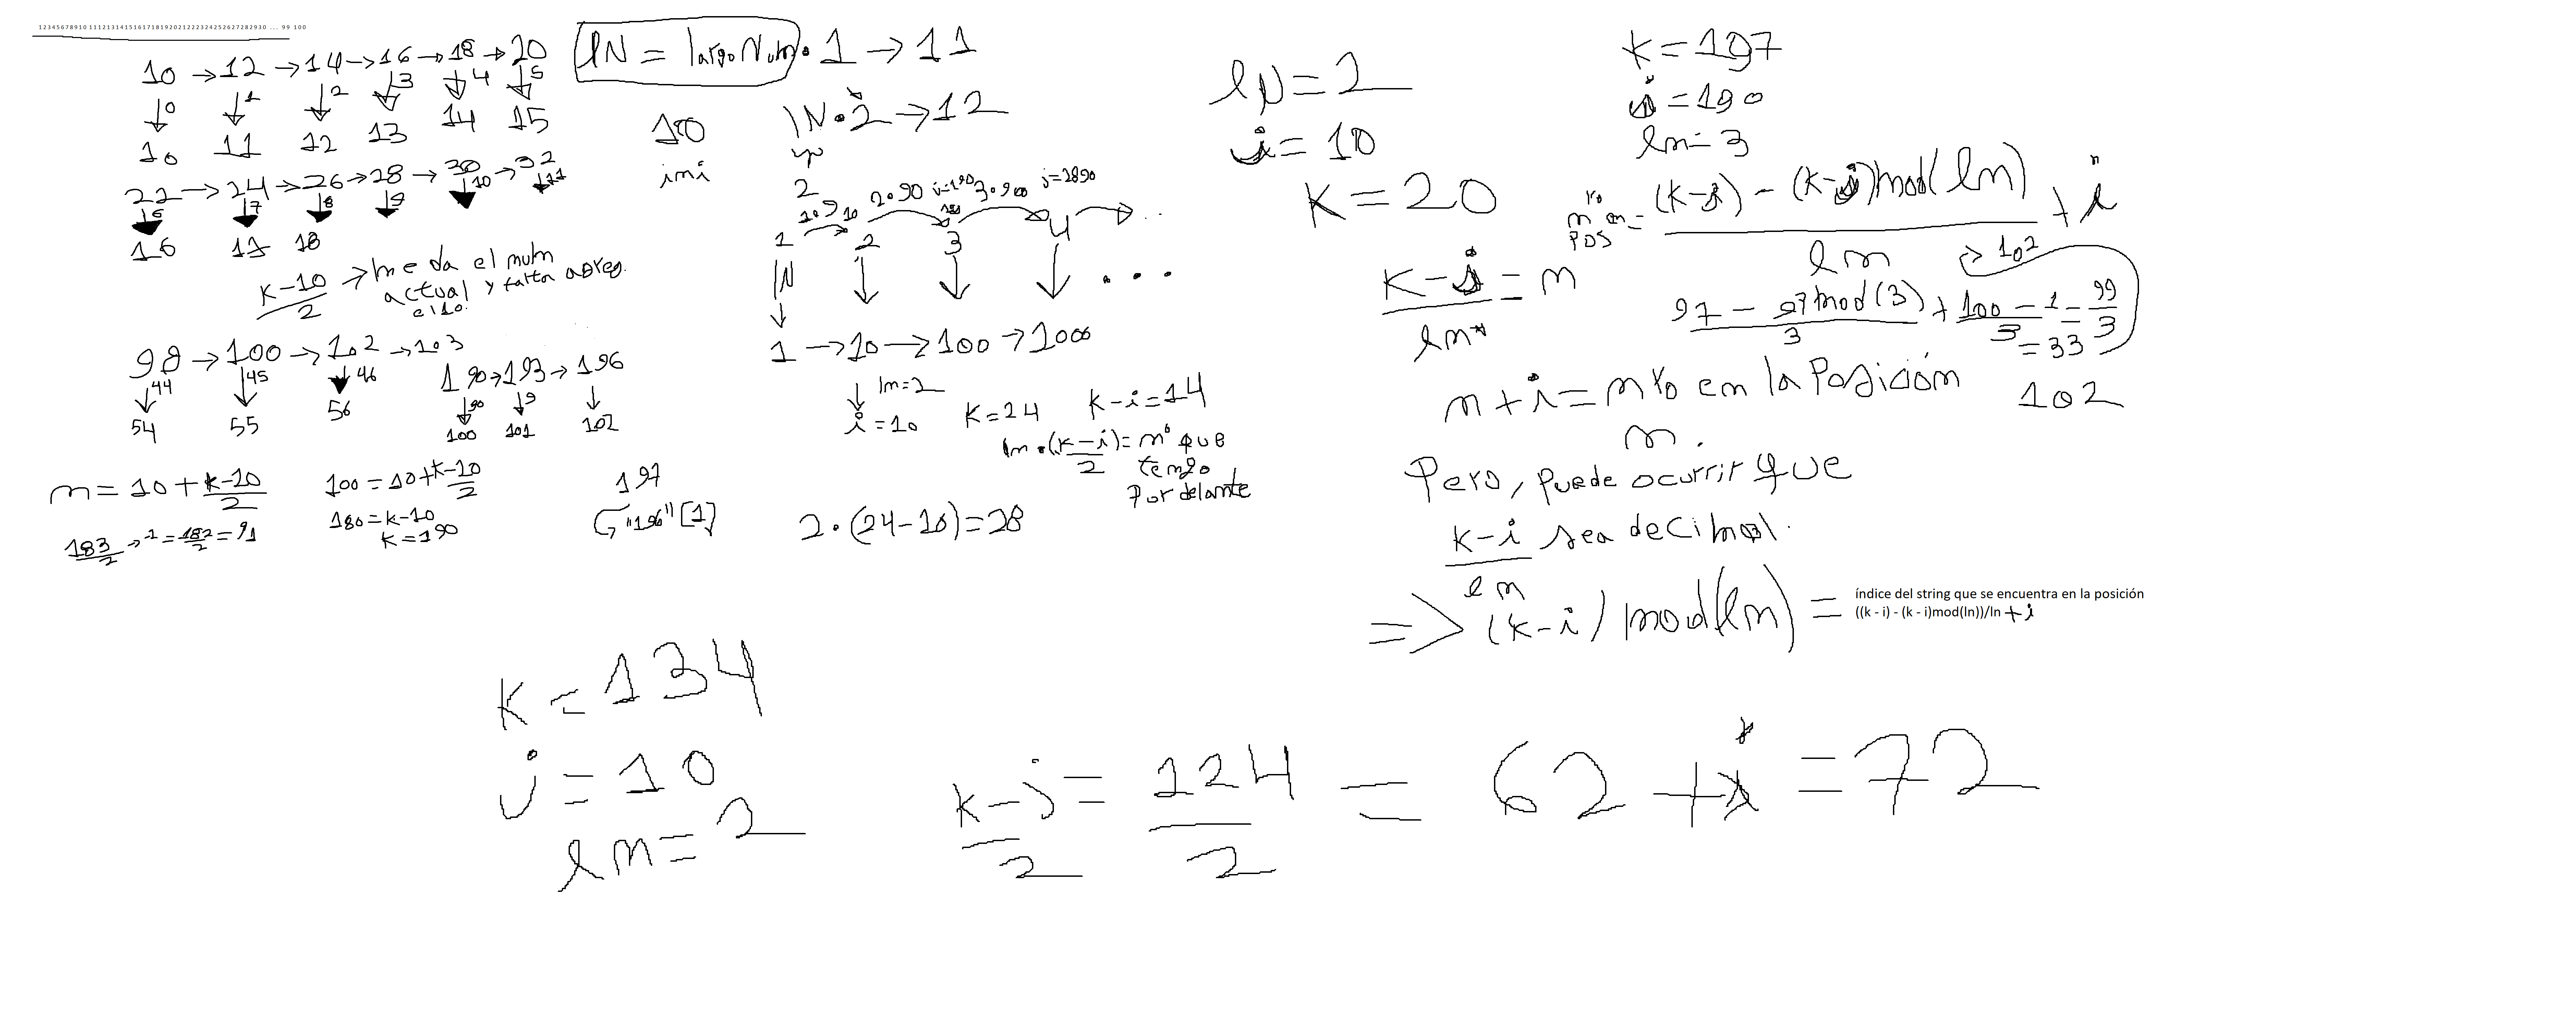 1 2 3 4 5 6 7 8 9 10 11 12 13 14 15 16 17 18 19 20 21 22 23 24 25 26 27 28 29 30 ... 99 100
10 → 12 → 14 → 16 → 18 → 20
0 1 2 3 4 5
10 11 12 13 14 15
22 → 24 → 26 → 28 → 30 → 32
6 7 8 9 10 11
16 17 18
k-10 / 2 → me da el num
actual y falta agreg.
el 10.
98 → 100 → 102 → 103
44 45 46
54 55 56
190 → 193 → 196
90 9
100 101 102
n = 10 + k-10 / 2
183/2 → -1 = 182/2 = 91
100 = 10 + k-10 / 2
180 = k-10
k = 190
197
"196" [1]
lN = largo Num. 1 → 11
lN · 2 → 12
100
ini
2
1·9 10 2·90 i=190 3·900 i=2890
1 2 3 4 ...
lN ...
1 → 10 → 100 → 1000
ln = 2
i = 10
k = 24 k-i = 14
ln · (k-i) / 2 = n° que
tengo
por delante
2 · (24-10) = 28
lN = 2
i = 10
k = 20
k-i / ln = n
k = 197
i = 190
ln = 3
nro en pos = (k-i) - (k-i) mod (ln) / ln + i
102
97 - 97 mod(3) / 3 + 100 - 1 / 3 = 99 / 3
= 33
102
n + i = nro en la Posición
n.
Pero, puede ocurrir que
k-i / ln sea decimal.
=> (k-i) mod(ln) =
índice del string que se encuentra en la posición
((k - i) - (k - i)mod(ln))/ln + i
k = 134
i = 10
ln = 2
k-i / 2 = 124 / 2 = 62 + i = 72